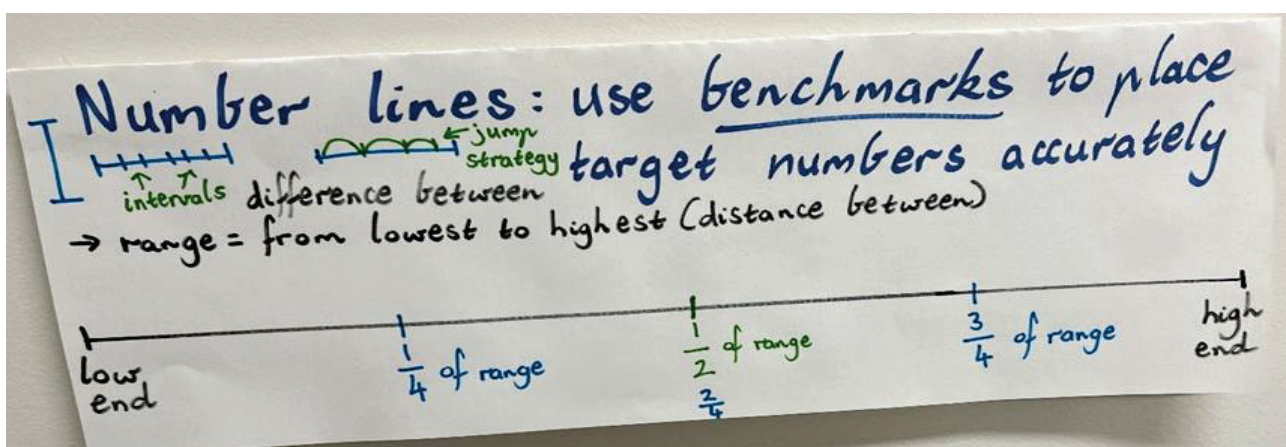 Number lines: use benchmarks to place
target numbers accurately
intervals
← jump
strategy
difference between
→ range = from lowest to highest (distance between)
low
end
1/4 of range
1/2 of range
2/4
3/4 of range
high
end